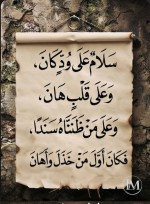 سَلَامٌ عَلَى وُدٍّ كَانَ،
وَعَلَى قَلْبٍ هَانَ،
وَعَلَى مَنْ ظَنَنَّاهُ سَنَدًا،
فَكَانَ أَوَّلَ مَنْ خَذَلَ وَأَهَانَ